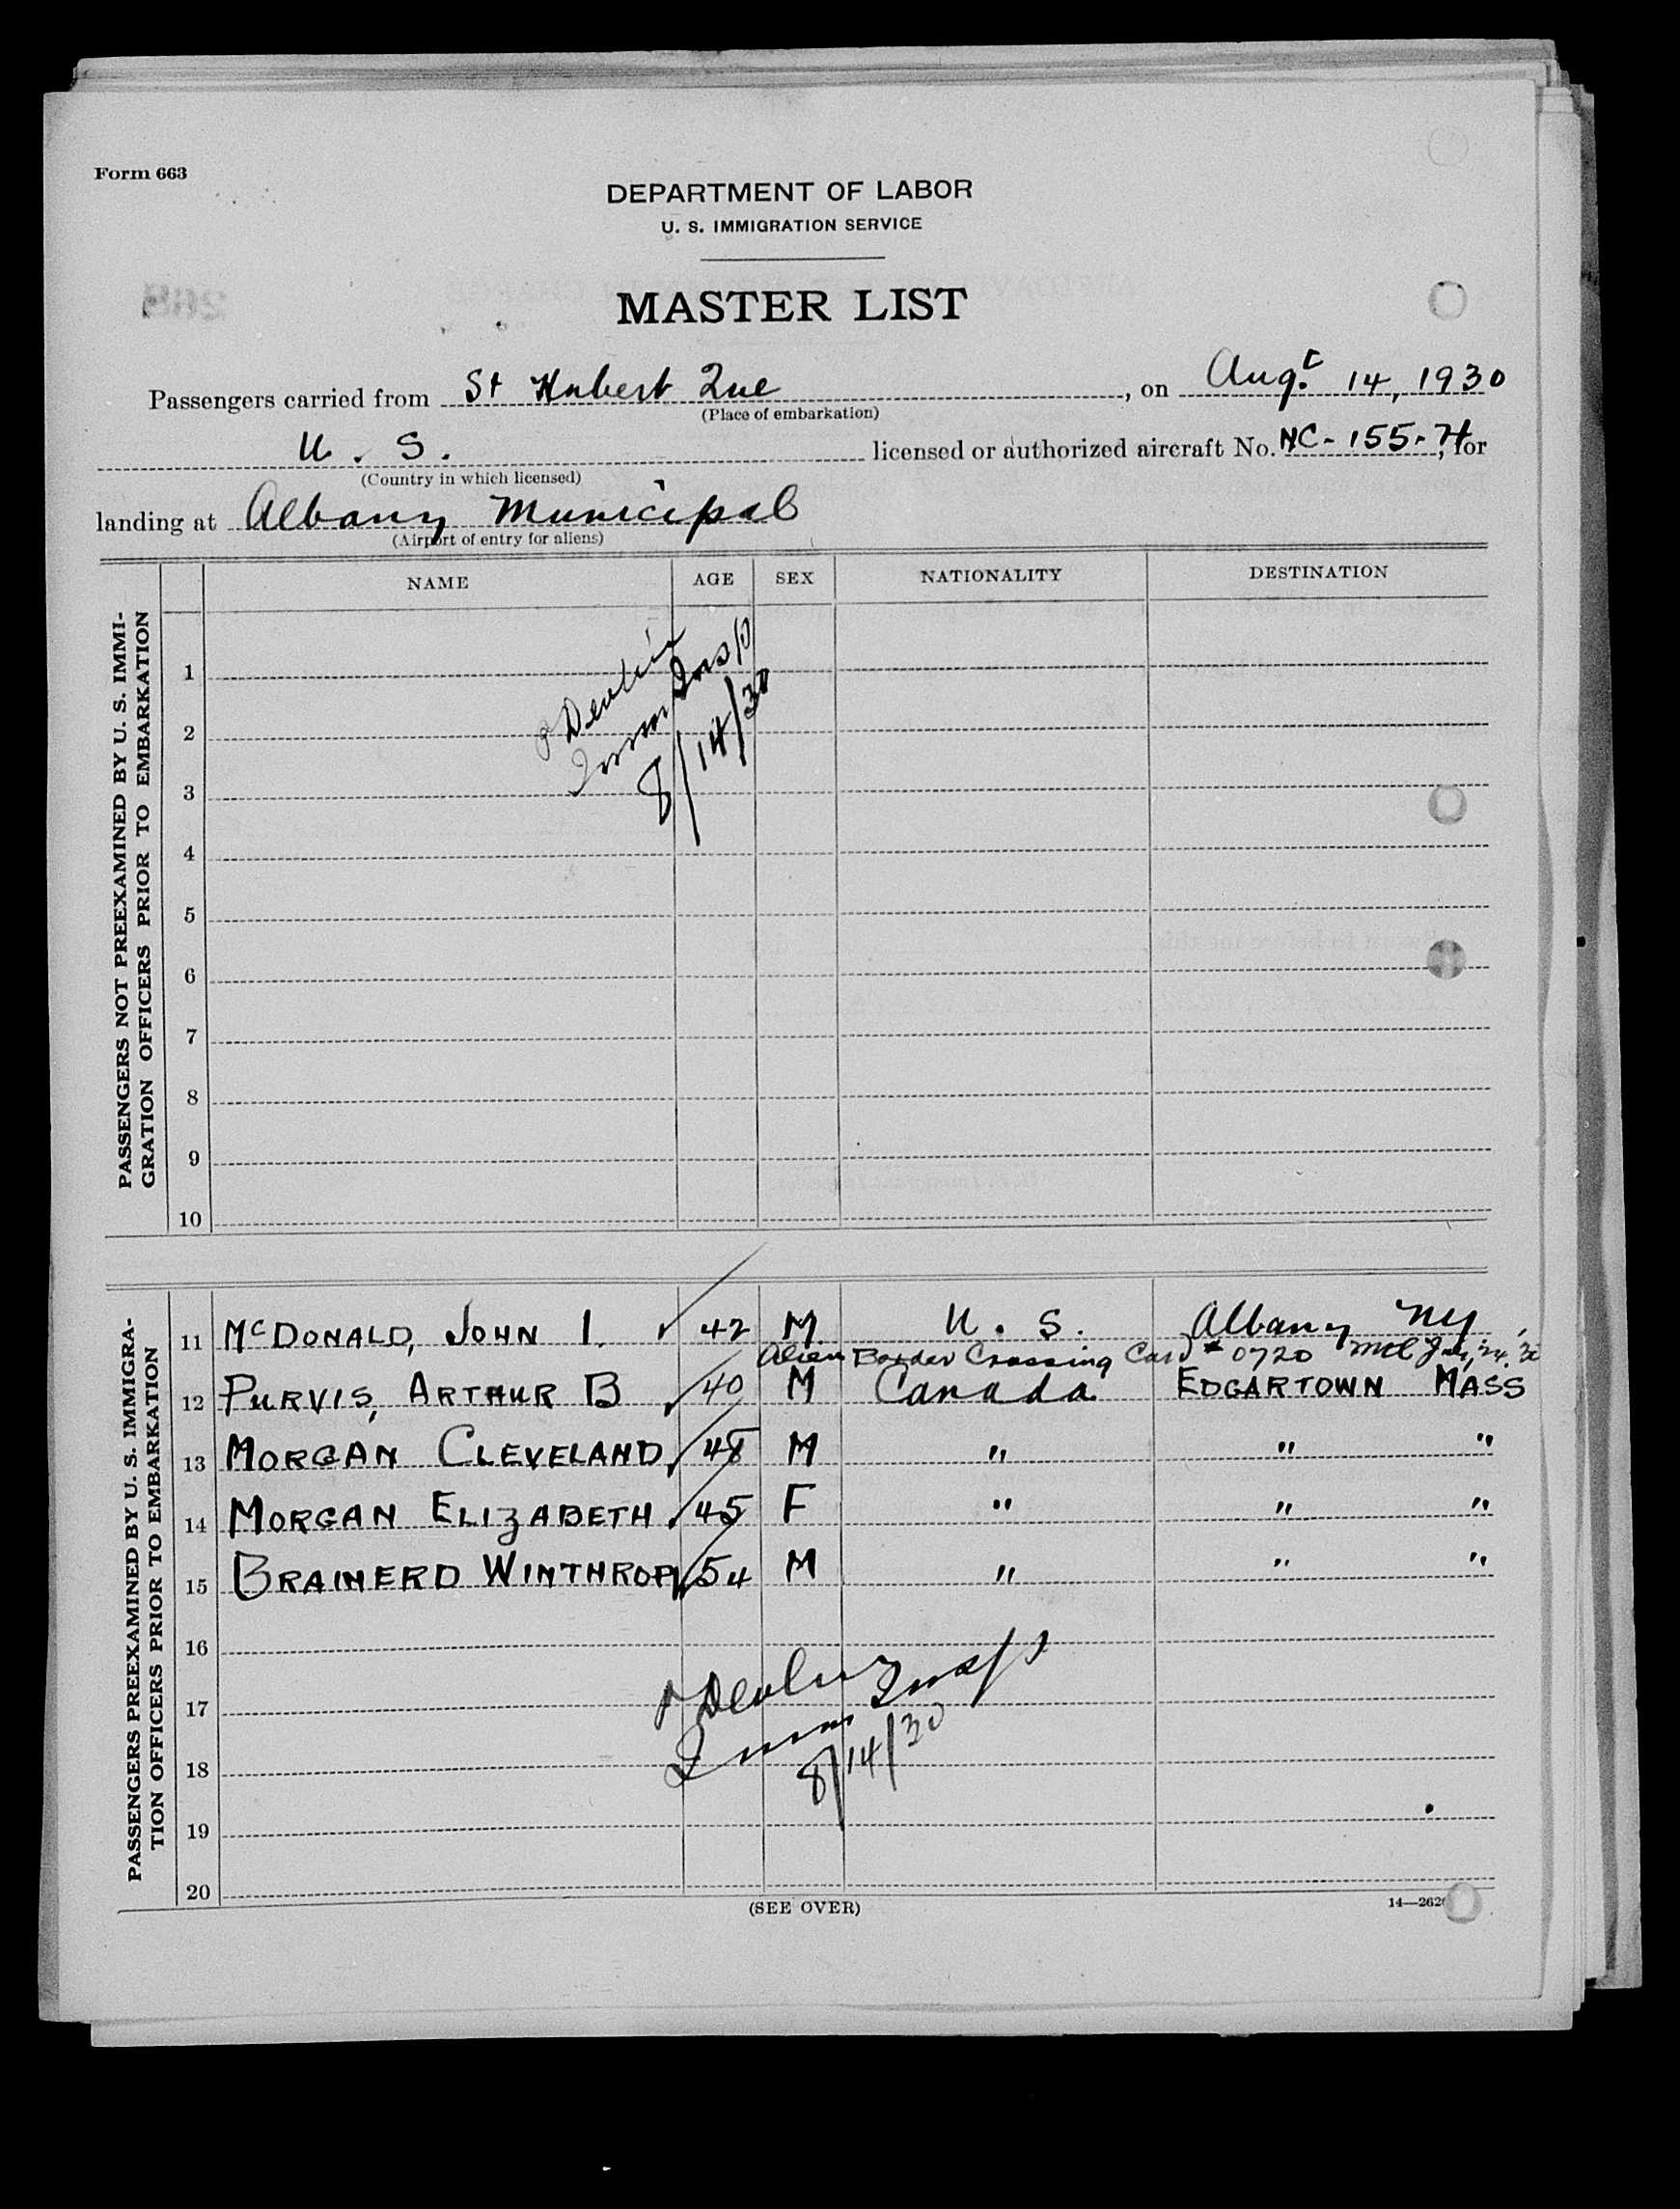 Form 663
DEPARTMENT OF LABOR
U. S. IMMIGRATION SERVICE
MASTER LIST
Passengers carried from St Hubert Que, on Augt. 14, 1930
(Place of embarkation)
U. S. licensed or authorized aircraft No. NC-155-H, for
(Country in which licensed)
landing at Albany Municipal
(Airport of entry for aliens)
NAME AGE SEX NATIONALITY DESTINATION
PASSENGERS NOT PREEXAMINED BY U. S. IMMI-
GRATION OFFICERS PRIOR TO EMBARKATION
1
2
3
4
5
6
7
8
9
10
P Devlin
Imm Insp
8/14/30
PASSENGERS PREEXAMINED BY U. S. IMMIGRA-
TION OFFICERS PRIOR TO EMBARKATION
11 McDONALD, JOHN I. 42 M U. S. Albany NY
Alien Border Crossing Card # 0720 Mtl 24, 30
12 PURVIS, ARTHUR B 40 M Canada EDGARTOWN MASS
13 MORGAN CLEVELAND 48 M " " "
14 MORGAN ELIZABETH 45 F " " "
15 BRAINERD WINTHROP 54 M " " "
16
17
18
19
20
P Devlin
Imm Insp
8/14/30
(SEE OVER)
14—262